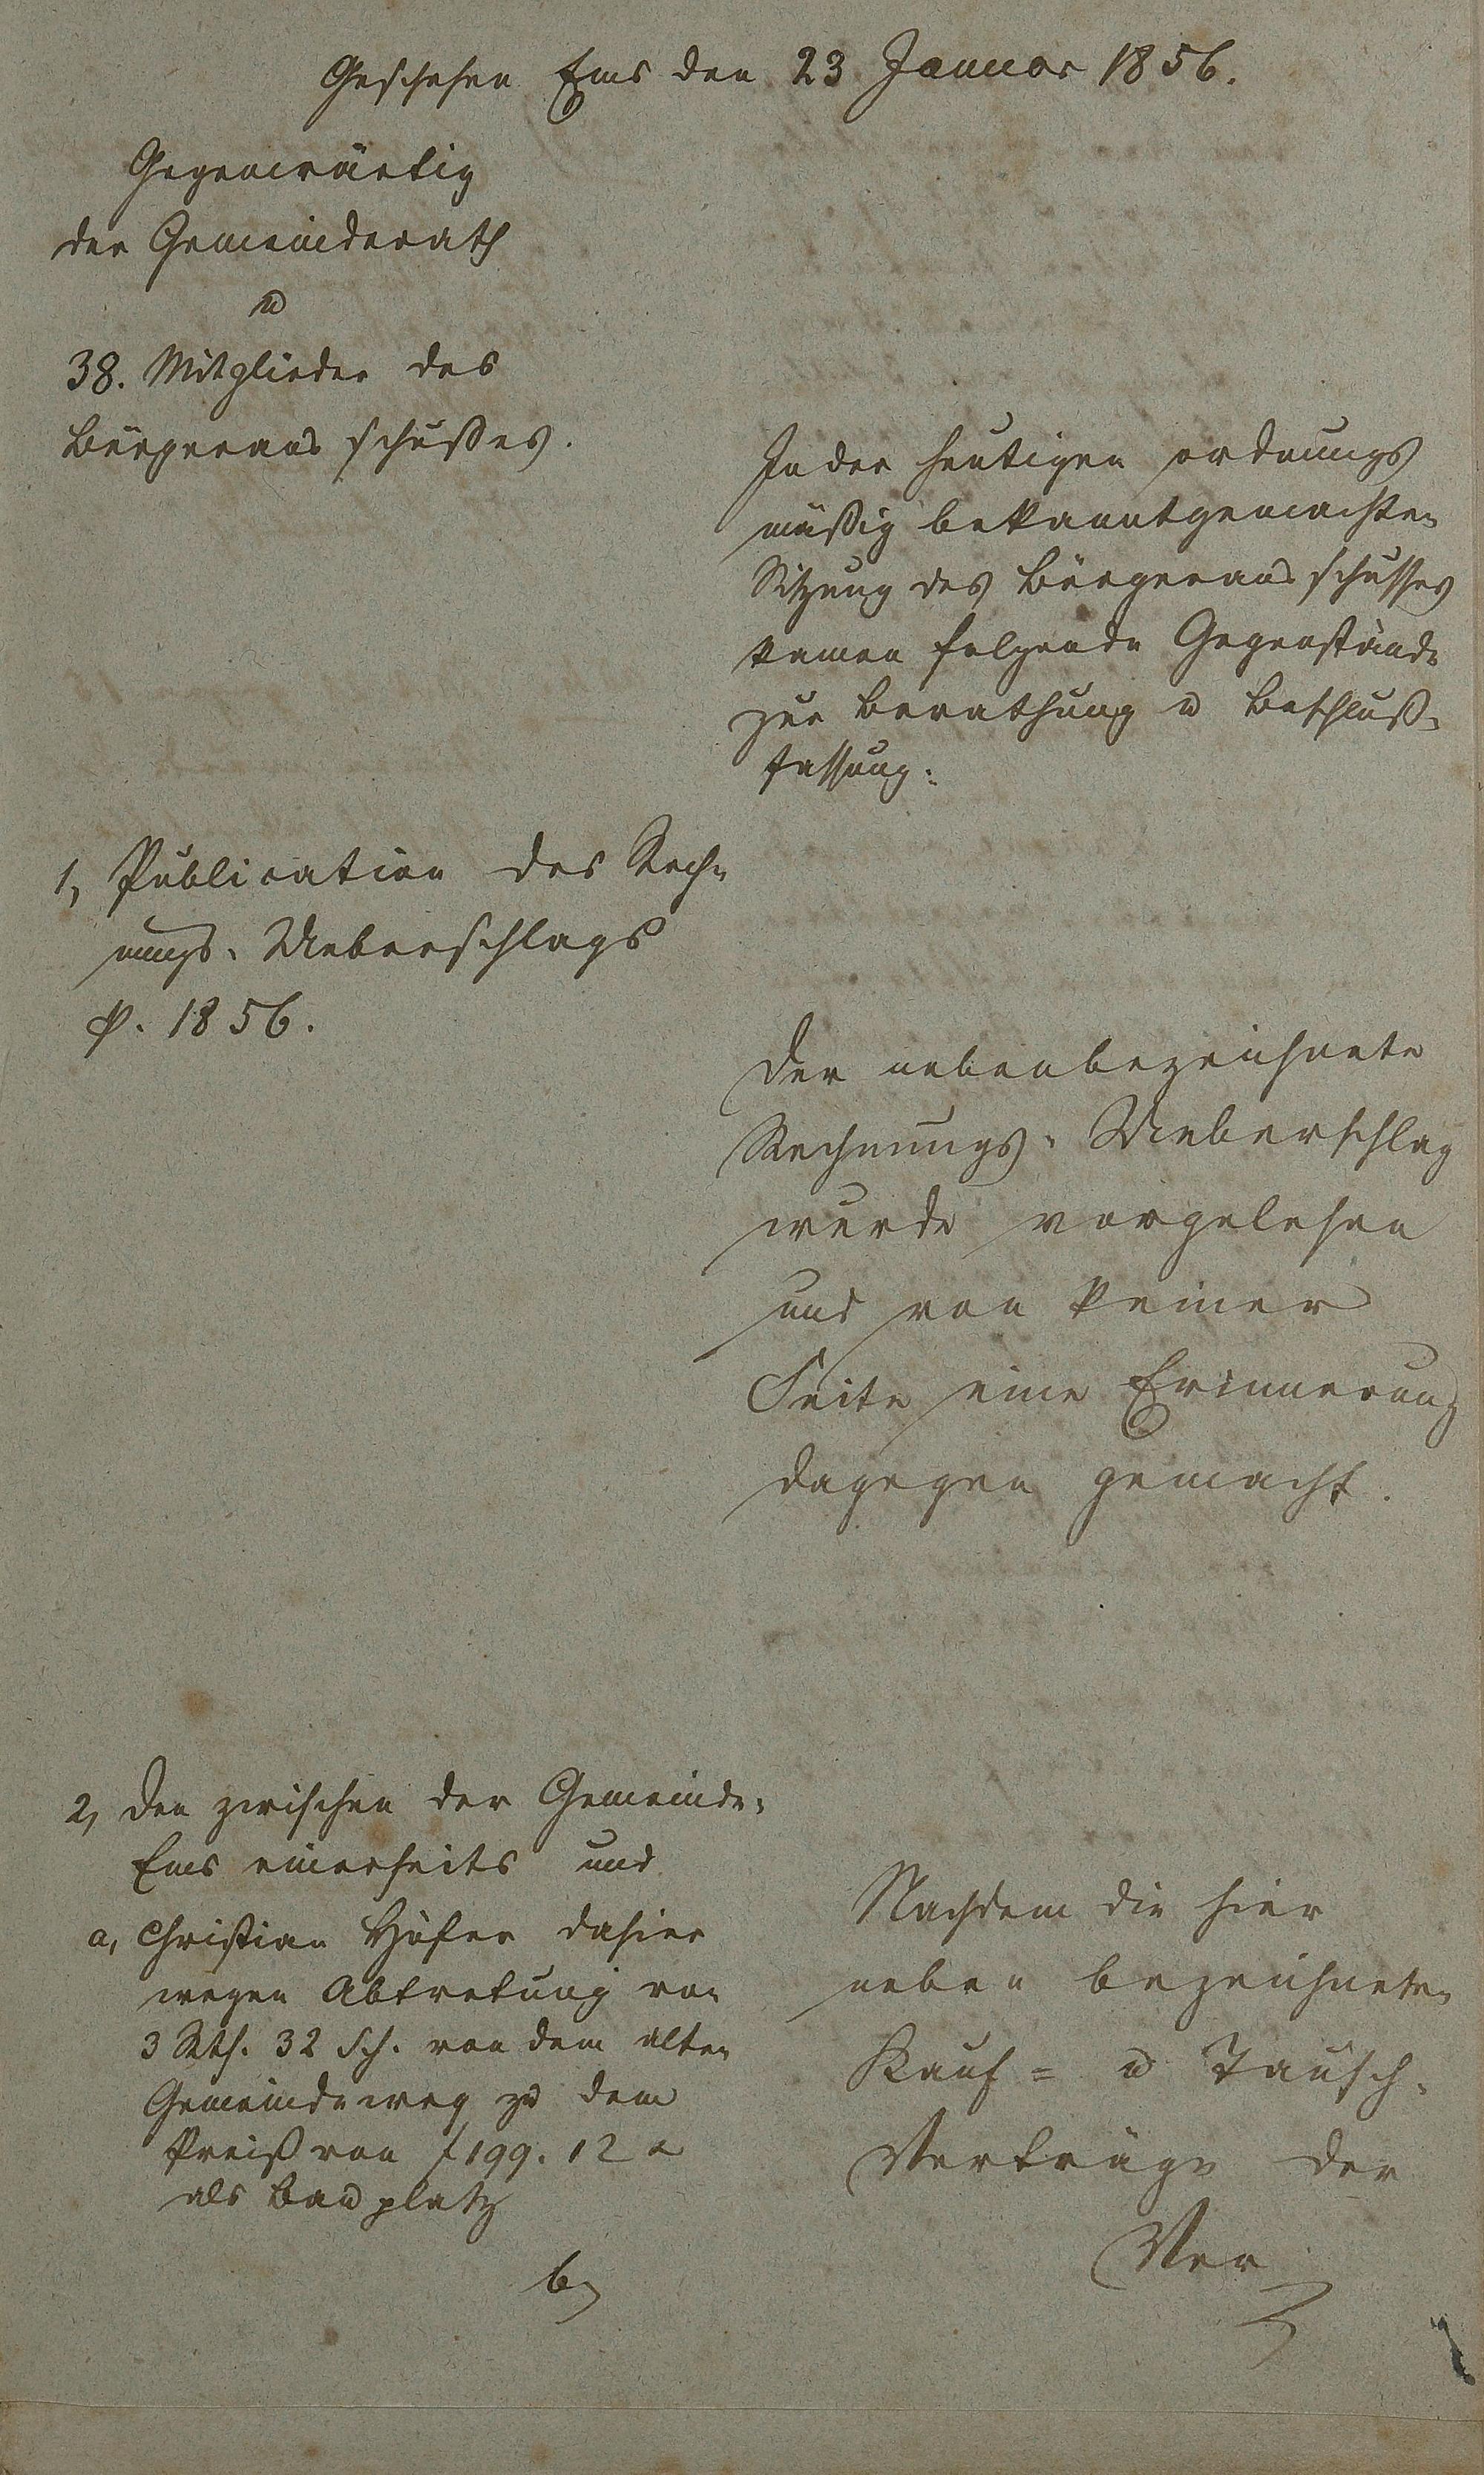 Geschehen Ems den 23 Januar 1856.
Gegenwärtig
der Gemeinderath
u
38. Mitglieder des
Bürgeraus schußes.
In der heutigen ordnungs
mäßig bekanntgemachten
Sitzung des Bürgeraus schusses
kamen folgende Gegenstände
zur Berathung u Beschluß-
fassung:
1, Publication des Rech-
nungs-Ueberschlags
p. 1856.
Der nebenbezeichnete
Rechnungs-Ueberschlag
wurde vorgelesen
und von keiner
Seite eine Erinnerung
dagegen gemacht.
2, Den zwischen der Gemeinde-
Ems einerseits und
a, Christian Höfer dahier
wegen Abtretung von
3 Rth. 32 Sch. von dem alten
Gemeindeweg zu dem
Preiß von f 199. 12 x
als Bauplatz
b,
Nachdem die hier
neben bezeichneten
Kauf= u Tausch-
Verträge der
Ver